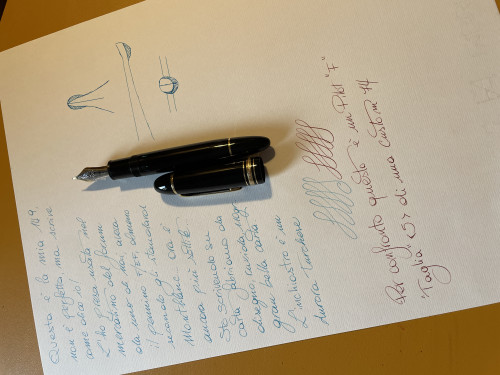 Questa è la mia 149.
non è perfetta, ma scrive
come dico io!
L'ho presa usata nel
mercatino del forum
da uno di noi, aveva
il pennino EF, almeno
secondo gli standard
Montblanc, ora è
ancora più sottile.
Sto scrivendo su
carta Fabriano da
disegno, ruvida
gran bella carta
L'inchiostro è un
Aurora Turchese
Per confronto questo è un Pilot "F"
di una Custom 74